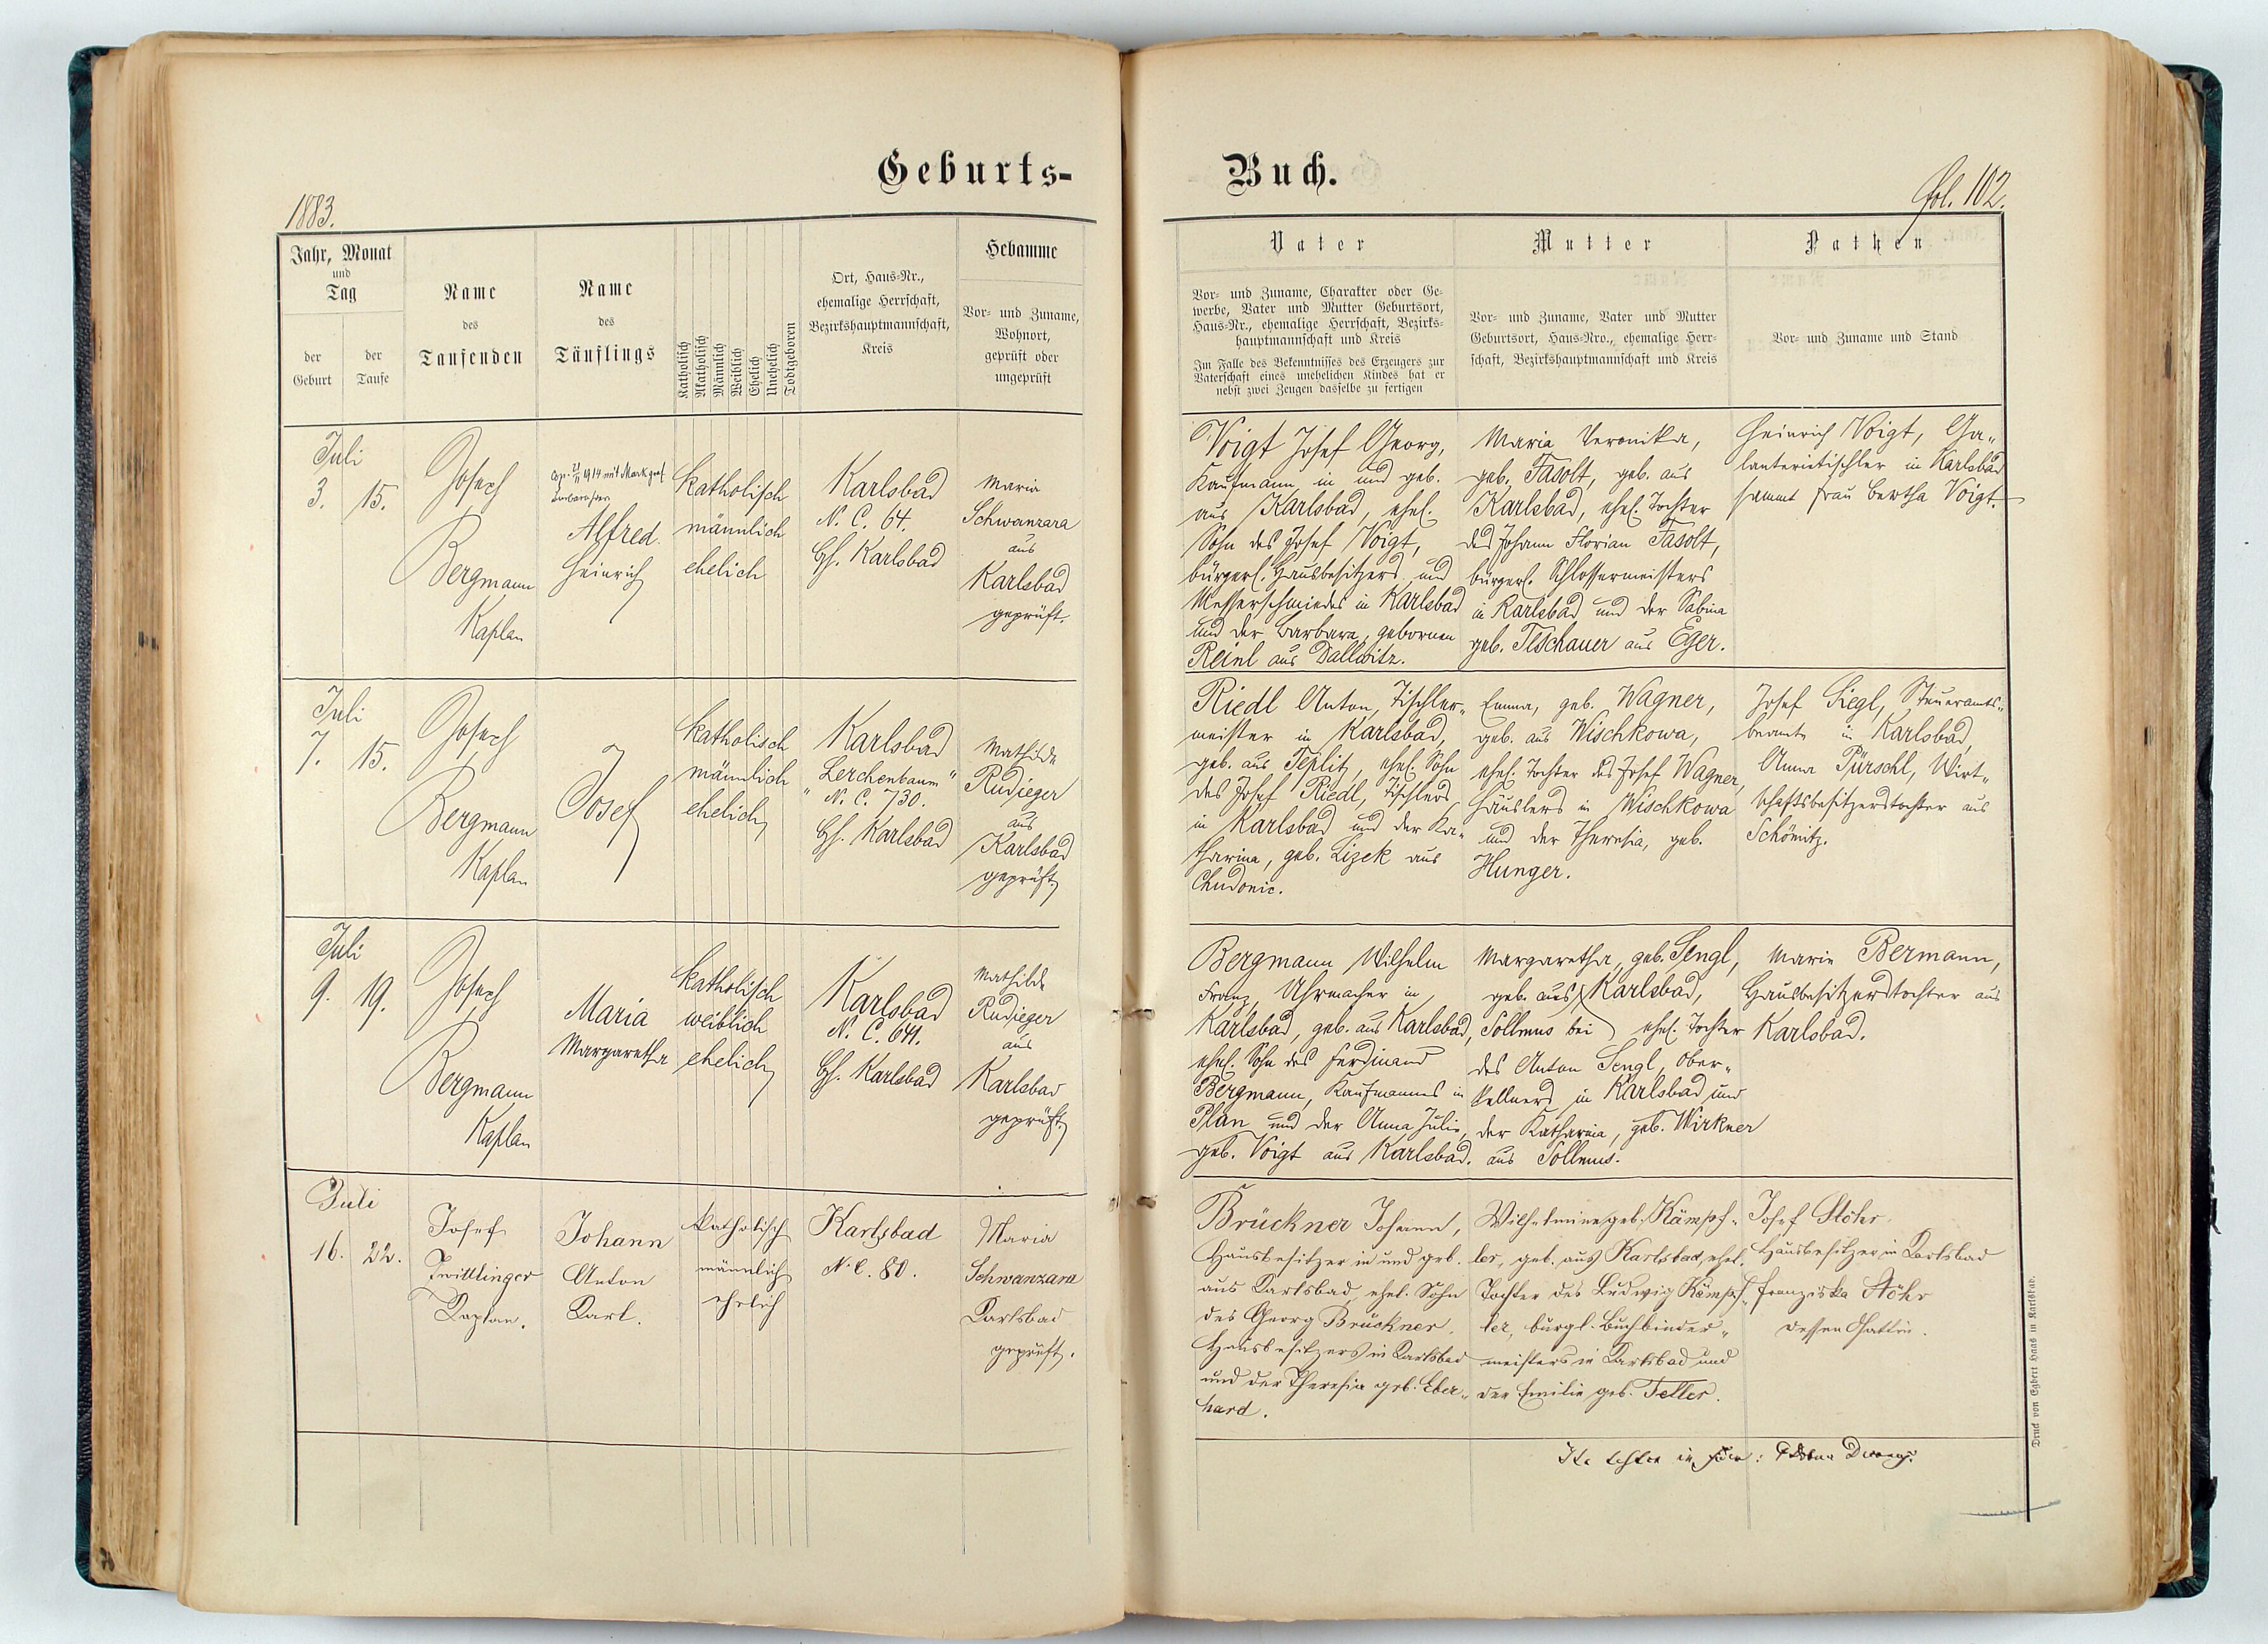 Geburts-
1883.
Jahr, Monat
und
Tag
der
Geburt
der
Taufe
Name
des
Taufenden
Name
des
Täuflings
Katholisch
Akatholisch
Männlich
Weiblich
Ehelich
Unehelich
Todtgeboren
Ort, Haus-Nr.,
ehemalige Herrschaft,
Bezirkshauptmannschaft,
Kreis
Hebamme
Vor- und Zuname,
Wohnort,
geprüft oder
ungeprüft
Juli
3. 15.
Josef
Bergmann
Kaplan
1914 mit Markgraf
Alfred.
Heinrich
katholisch
männlich
ehelich
Karlsbad
N. C. 64.
Bh. Karlsbad
Maria
Schwanzara
aus
Karlsbad
geprüft.
Juli
7. 15.
Josef
Bergmann
Kaplan
Josef
katholisch
männlich
ehelich
Karlsbad
"Lerchenbaum"
N. C. 730.
Bh. Karlsbad
Mathilde
Rudieger
aus
Karlsbad
geprüft
Juli
9. 19.
Josef
Bergmann
Kaplan
Maria
Margaretha
katholisch
weiblich
ehelich
Karlsbad
N. C. 641.
Bh. Karlsbad
Mathilde
Rudieger
aus
Karlsbad
geprüft
Juli
16. 22.
Josef
Zwittlinger
Kaplan.
Johann
Anton
Karl.
katholisch
männlich
ehelich
Karlsbad
N. C. 80.
Maria
Schwanzara
Karlsbad
geprüft.
Buch.
fol. 102.
Vater
Vor- und Zuname, Charakter oder Ge-
werbe, Vater und Mutter Geburtsort,
Haus-Nr., ehemalige Herrschaft, Bezirks-
hauptmannschaft und Kreis
Im Falle des Bekenntnisses des Erzeugers zur
Vaterschaft eines unehelichen Kindes hat er
nebst zwei Zeugen dasselbe zu fertigen
Mutter
Vor- und Zuname, Vater und Mutter
Geburtsort, Haus-Nro., ehemalige Herr-
schaft, Bezirkshauptmannschaft und Kreis
Pathen
Vor- und Zuname und Stand
Voigt Josef Georg,
Kaufmann, in und geb.
aus Karlsbad, ehel.
Sohn des Josef Voigt,
bürgerl. Hausbesitzers und
Messerschmiedes in Karlsbad
und der Barbara, gebornen
Reinl aus Dallwitz.
Maria Veronika,
geb. Fasolt, geb. aus
Karlsbad, ehel. Tochter
des Johann Florian Fasolt,
bürgerl. Schlossermeisters
in Karlsbad und der Sabina
geb. Tlschauer aus Eger.
Heinrich Voigt, Ga-
lanterietischler in Karlsbad
sammt Frau Bertha Voigt.
Riedl Anton, Tischler-
meister in Karlsbad,
geb. aus Teplitz, ehel. Sohn
des Josef Riedl, Tischlers
in Karlsbad und der Ka-
tharina, geb. Lizek aus
Chudenic.
Emma, geb. Wagner,
geb. aus Wischkowa,
ehel. Tochter des Josef Wagner,
Häuslers in Wischkowa
und der Theresia, geb.
Hunger.
Josef Siegl, Steueramts-
beamte in Karlsbad,
Anna Pürschl, Wirt-
schaftsbesitzerstochter aus
Schömitz.
Bergmann Wilhelm
Franz, Uhrmacher in
Karlsbad, geb. aus Karlsbad,
ehel. Sohn des Ferdinand
Bergmann, Kaufmannes in
Plan und der Anna Julie,
geb. Voigt aus Karlsbad.
Margaretha, geb. Sengl,
geb. aus Karlsbad,
Sollmus bei ehel. Tochter
des Anton Sengl, Ober-
kellners in Karlsbad und
der Katharina, geb. Wirkner
aus Sollmus.
Marie Bermann,
Hausbesitzerstochter aus
Karlsbad.
Brückner Johann,
Hausbesitzer in und geb.
aus Karlsbad, ehel. Sohn
des Georg Brückner,
Hausbesitzers in Karlsbad
und der Theresia geb. Eber-
hard.
Wilhelmine geb. Kämpf-
ler, geb. aus Karlsbad, ehel.
Tochter des Ludwig Kämpf-
ler, bürgl. Buchbinder-
meisters in Karlsbad und
der Emilie geb. Teller.
Josef Stöhr
Hausbesitzer in Karlsbad
Franziska Stöhr
dessen Gattin.
Druck von Egbert Haas in Karlsbad.